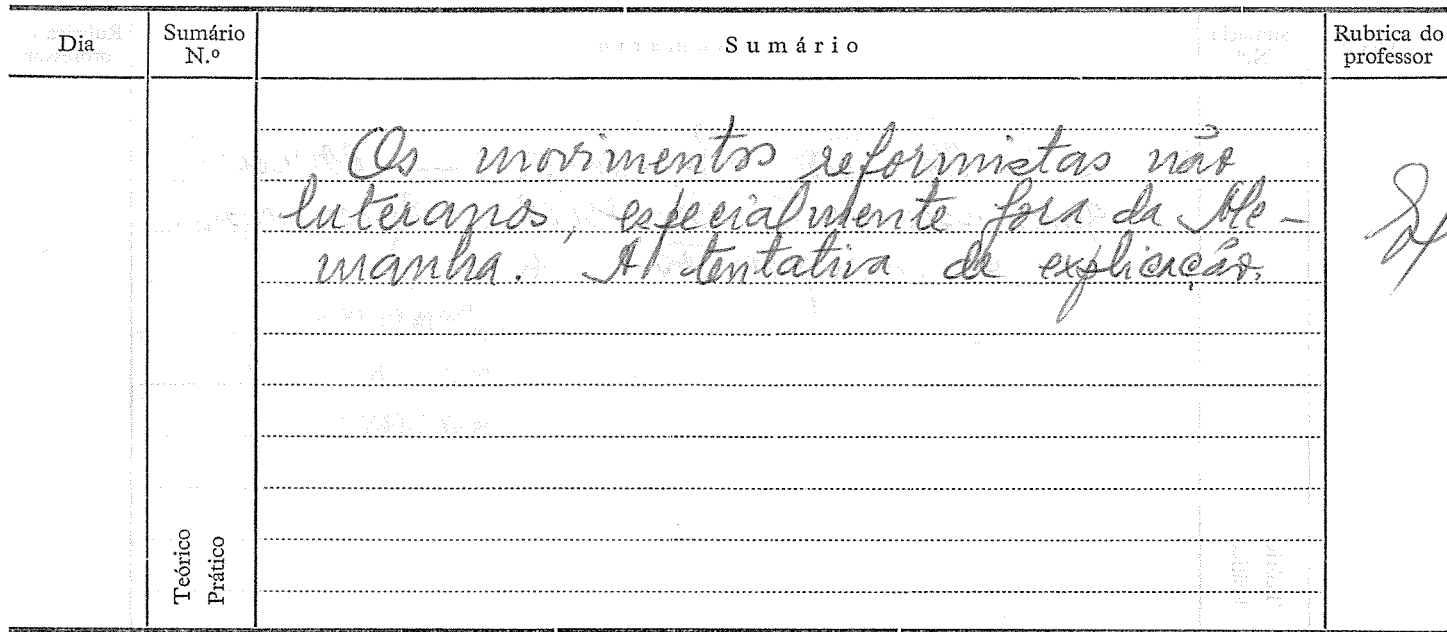 Dia
Sumário N.º
Sumário
Rubrica do professor
Os movimentos reformistas não
luteranos, especialmente fora da Ale-
manha. A tentativa de explicação.
Teórico
Prático